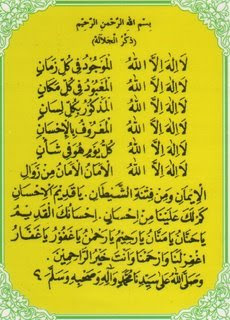 بِسْمِ اللهِ الرَّحْمٰنِ الرَّحِيْمِ
(ذِكْرُ الْجَلَالَةْ)
لَا اِلٰهَ اِلَّا اللهُ الْمَوْجُوْدُ فِيْ كُلِّ زَمَانٍ
لَا اِلٰهَ اِلَّا اللهُ الْمَعْبُوْدُ فِيْ كُلِّ مَكَانٍ
لَا اِلٰهَ اِلَّا اللهُ الْمَذْكُوْرُ بِكُلِّ لِسَانٍ
لَا اِلٰهَ اِلَّا اللهُ الْمَعْرُوْفُ بِالْاِحْسَانِ
لَا اِلٰهَ اِلَّا اللهُ كُلَّ يَوْمٍ هُوَ فِيْ شَأْنٍ
لَا اِلٰهَ اِلَّا اللهُ اَلْاَمَانُ الْاَمَانُ مِنْ زَوَالِ
الْاِيْمَانِ وَمِنْ فِتْنَةِ الشَّيْطَانِ. يَا قَدِيْمَ الْاِحْسَانِ
كَمْ لَكَ عَلَيْنَا مِنْ اِحْسَانٍ. اِحْسَانُكَ الْقَدِيْمُ
يَا حَنَّانُ يَا مَنَّانُ يَا رَحِيْمُ يَا رَحْمٰنُ يَا غَفُوْرُ يَا غَفَّارُ
اِغْفِرْ لَنَا وَارْحَمْنَا وَاَنْتَ خَيْرُ الرَّاحِمِيْنَ.
وَصَلَّى اللهُ عَلٰى سَيِّدِنَا مُحَمَّدٍ وَاٰلِهِ وَصَحْبِهِ وَسَلَّمَ.